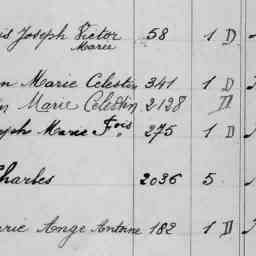 is Joseph Victor 58 1 D
Marie
n Marie Celestin 341 1 D
in Marie Celestin 2128 D
seph Marie Fois 275 1 D
Charles 2036 5
arie Ange Antoine 182 1 D